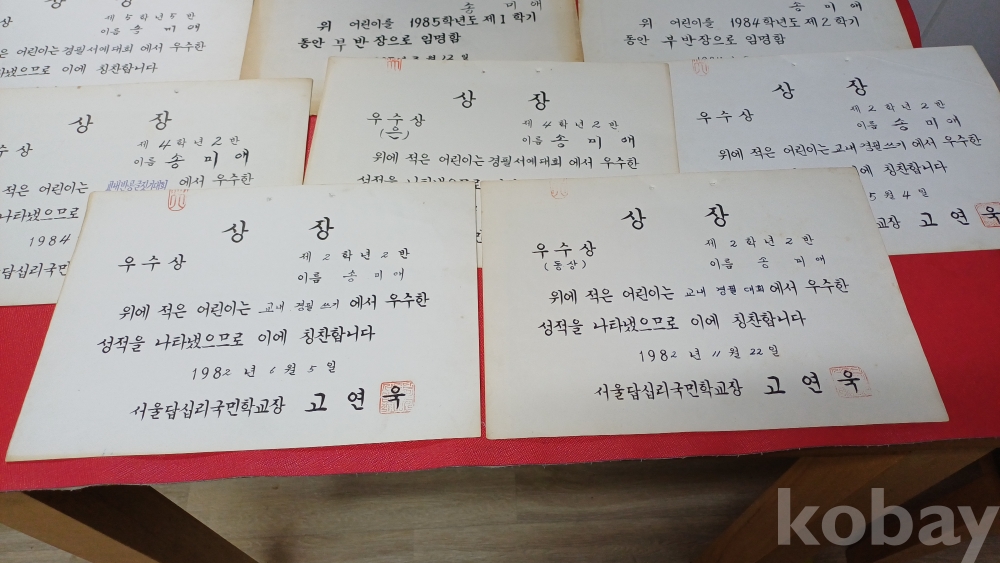 상
제 5 학년 5 반
이름 송 미 애
어린이는 경필서예대회 에서 우수한
나타냈으므로 이에 칭찬합니다
송 미 애
위 어린이를 1985학년도 제 1 학기
동안 부반장으로 임명함
송 미 애
위 어린이를 1984학년도 제 2 학기
동안 부반장으로 임명함
상 장
수상
제 4 학년 2 반
이름 송 미 애
적은 어린이는 에서 우수한
나타냈으므로
1984
답십리국민
상 장
우수상
(은)
제 4 학년 2 반
이름 송 미 애
위에 적은 어린이는 경필서예대회 에서 우수한
상 장
우수상
제 2 학년 2 반
이름 송 미 애
위에 적은 어린이는 교내 경필쓰기 에서 우수한
이에 칭찬합니다
5 월 4 일
교장 고 연 욱
상 장
우수상
제 2 학년 2 반
이름 송 미 애
위에 적은 어린이는 교내 경필 쓰기 에서 우수한
성적을 나타냈으므로 이에 칭찬합니다
1982 년 6 월 5 일
서울답십리국민학교장 고 연 욱
상 장
우수상
(동상)
제 2 학년 2 반
이름 송 미 애
위에 적은 어린이는 교내 경필 대회 에서 우수한
성적을 나타냈으므로 이에 칭찬합니다
1982 년 11 월 22 일
서울답십리국민학교장 고 연 욱
kobay